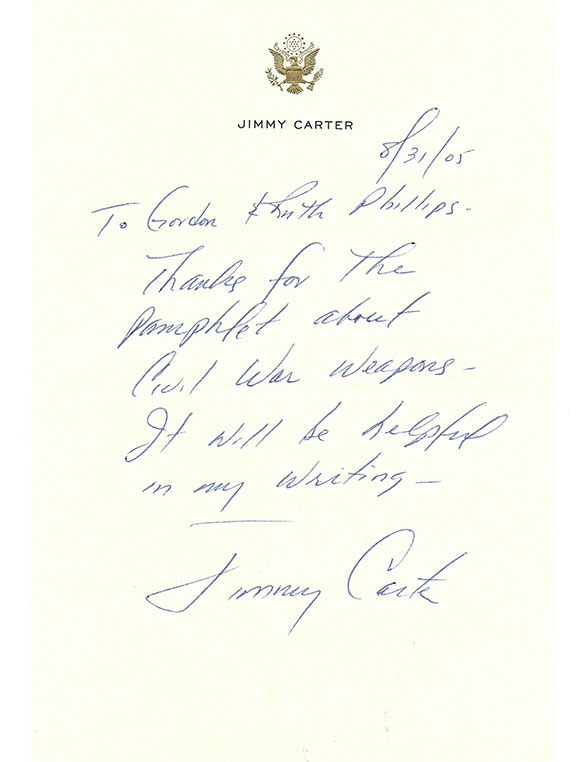 JIMMY CARTER
8/31/05
To Gordon & Ruth Phillips -
Thanks for the
pamphlet about
Civil War weapons -
It will be helpful
in my writing -
Jimmy Carter